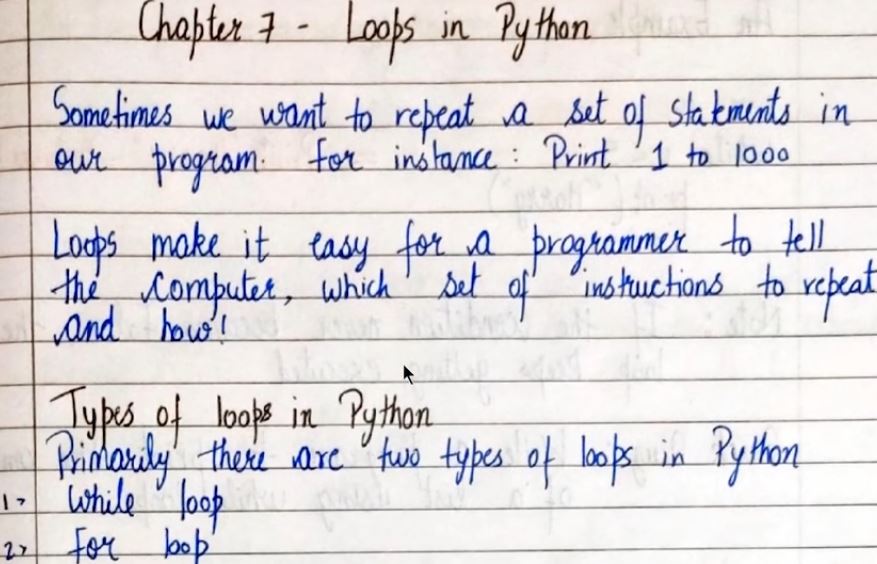 Chapter 7 - Loops in Python
Sometimes we want to repeat a set of statements in
our program. for instance : Print 1 to 1000
Loops make it easy for a programmer to tell
the computer, which set of instructions to repeat
and how!
Types of loops in Python
Primarily there are two types of loops in Python
1> While loop
2> for loop